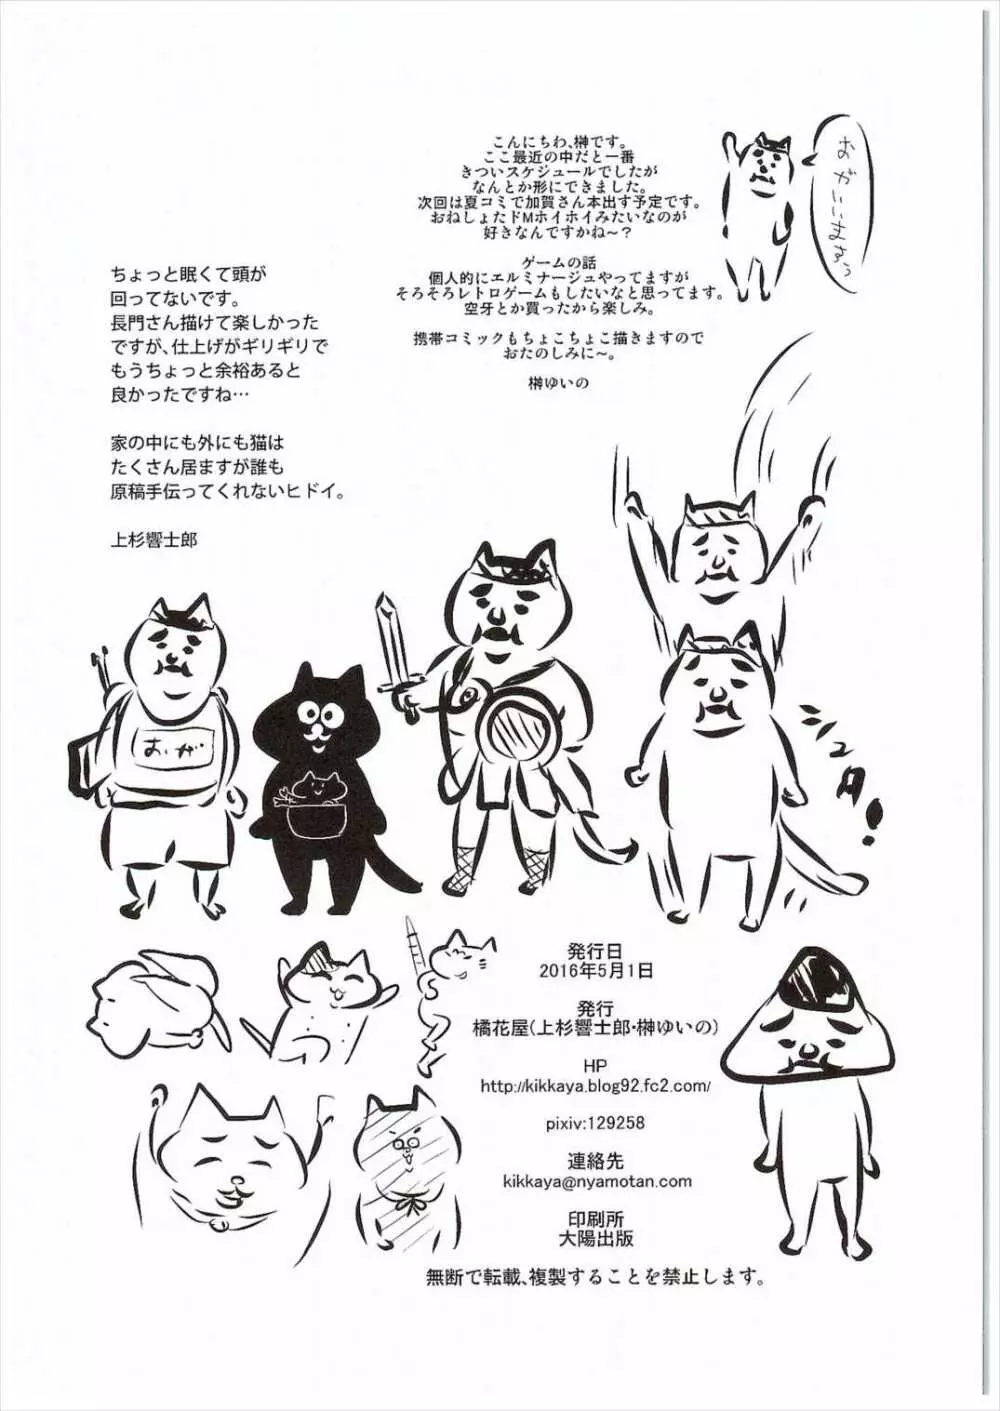 こんにちわ、榊です。
ここ最近の中だと一番
きついスケジュールでしたが
なんとか形にできました。
次回は夏コミで加賀さん本出す予定です。
おねしょたドMホイホイみたいなのが
好きなんですかね～？
ゲームの話
個人的にエルミナージュやってますが
そろそろレトロゲームもしたいなと思ってます。
空牙とか買ったから楽しみ。
携帯コミックもちょこちょこ描きますので
おたのしみに～。
榊ゆいの
ちょっと眠くて頭が
回ってないです。
長門さん描けて楽しかった
ですが、仕上げがギリギリで
もうちょっと余裕あると
良かったですね…
家の中にも外にも猫は
たくさん居ますが誰も
原稿手伝ってくれないヒドイ。
上杉響士郎
おが
発行日
2016年5月1日
発行
橘花屋(上杉響士郎・榊ゆいの)
HP
http://kikkaya.blog92.fc2.com/
pixiv:129258
連絡先
kikkaya@nyamotan.com
印刷所
大陽出版
無断で転載、複製することを禁止します。